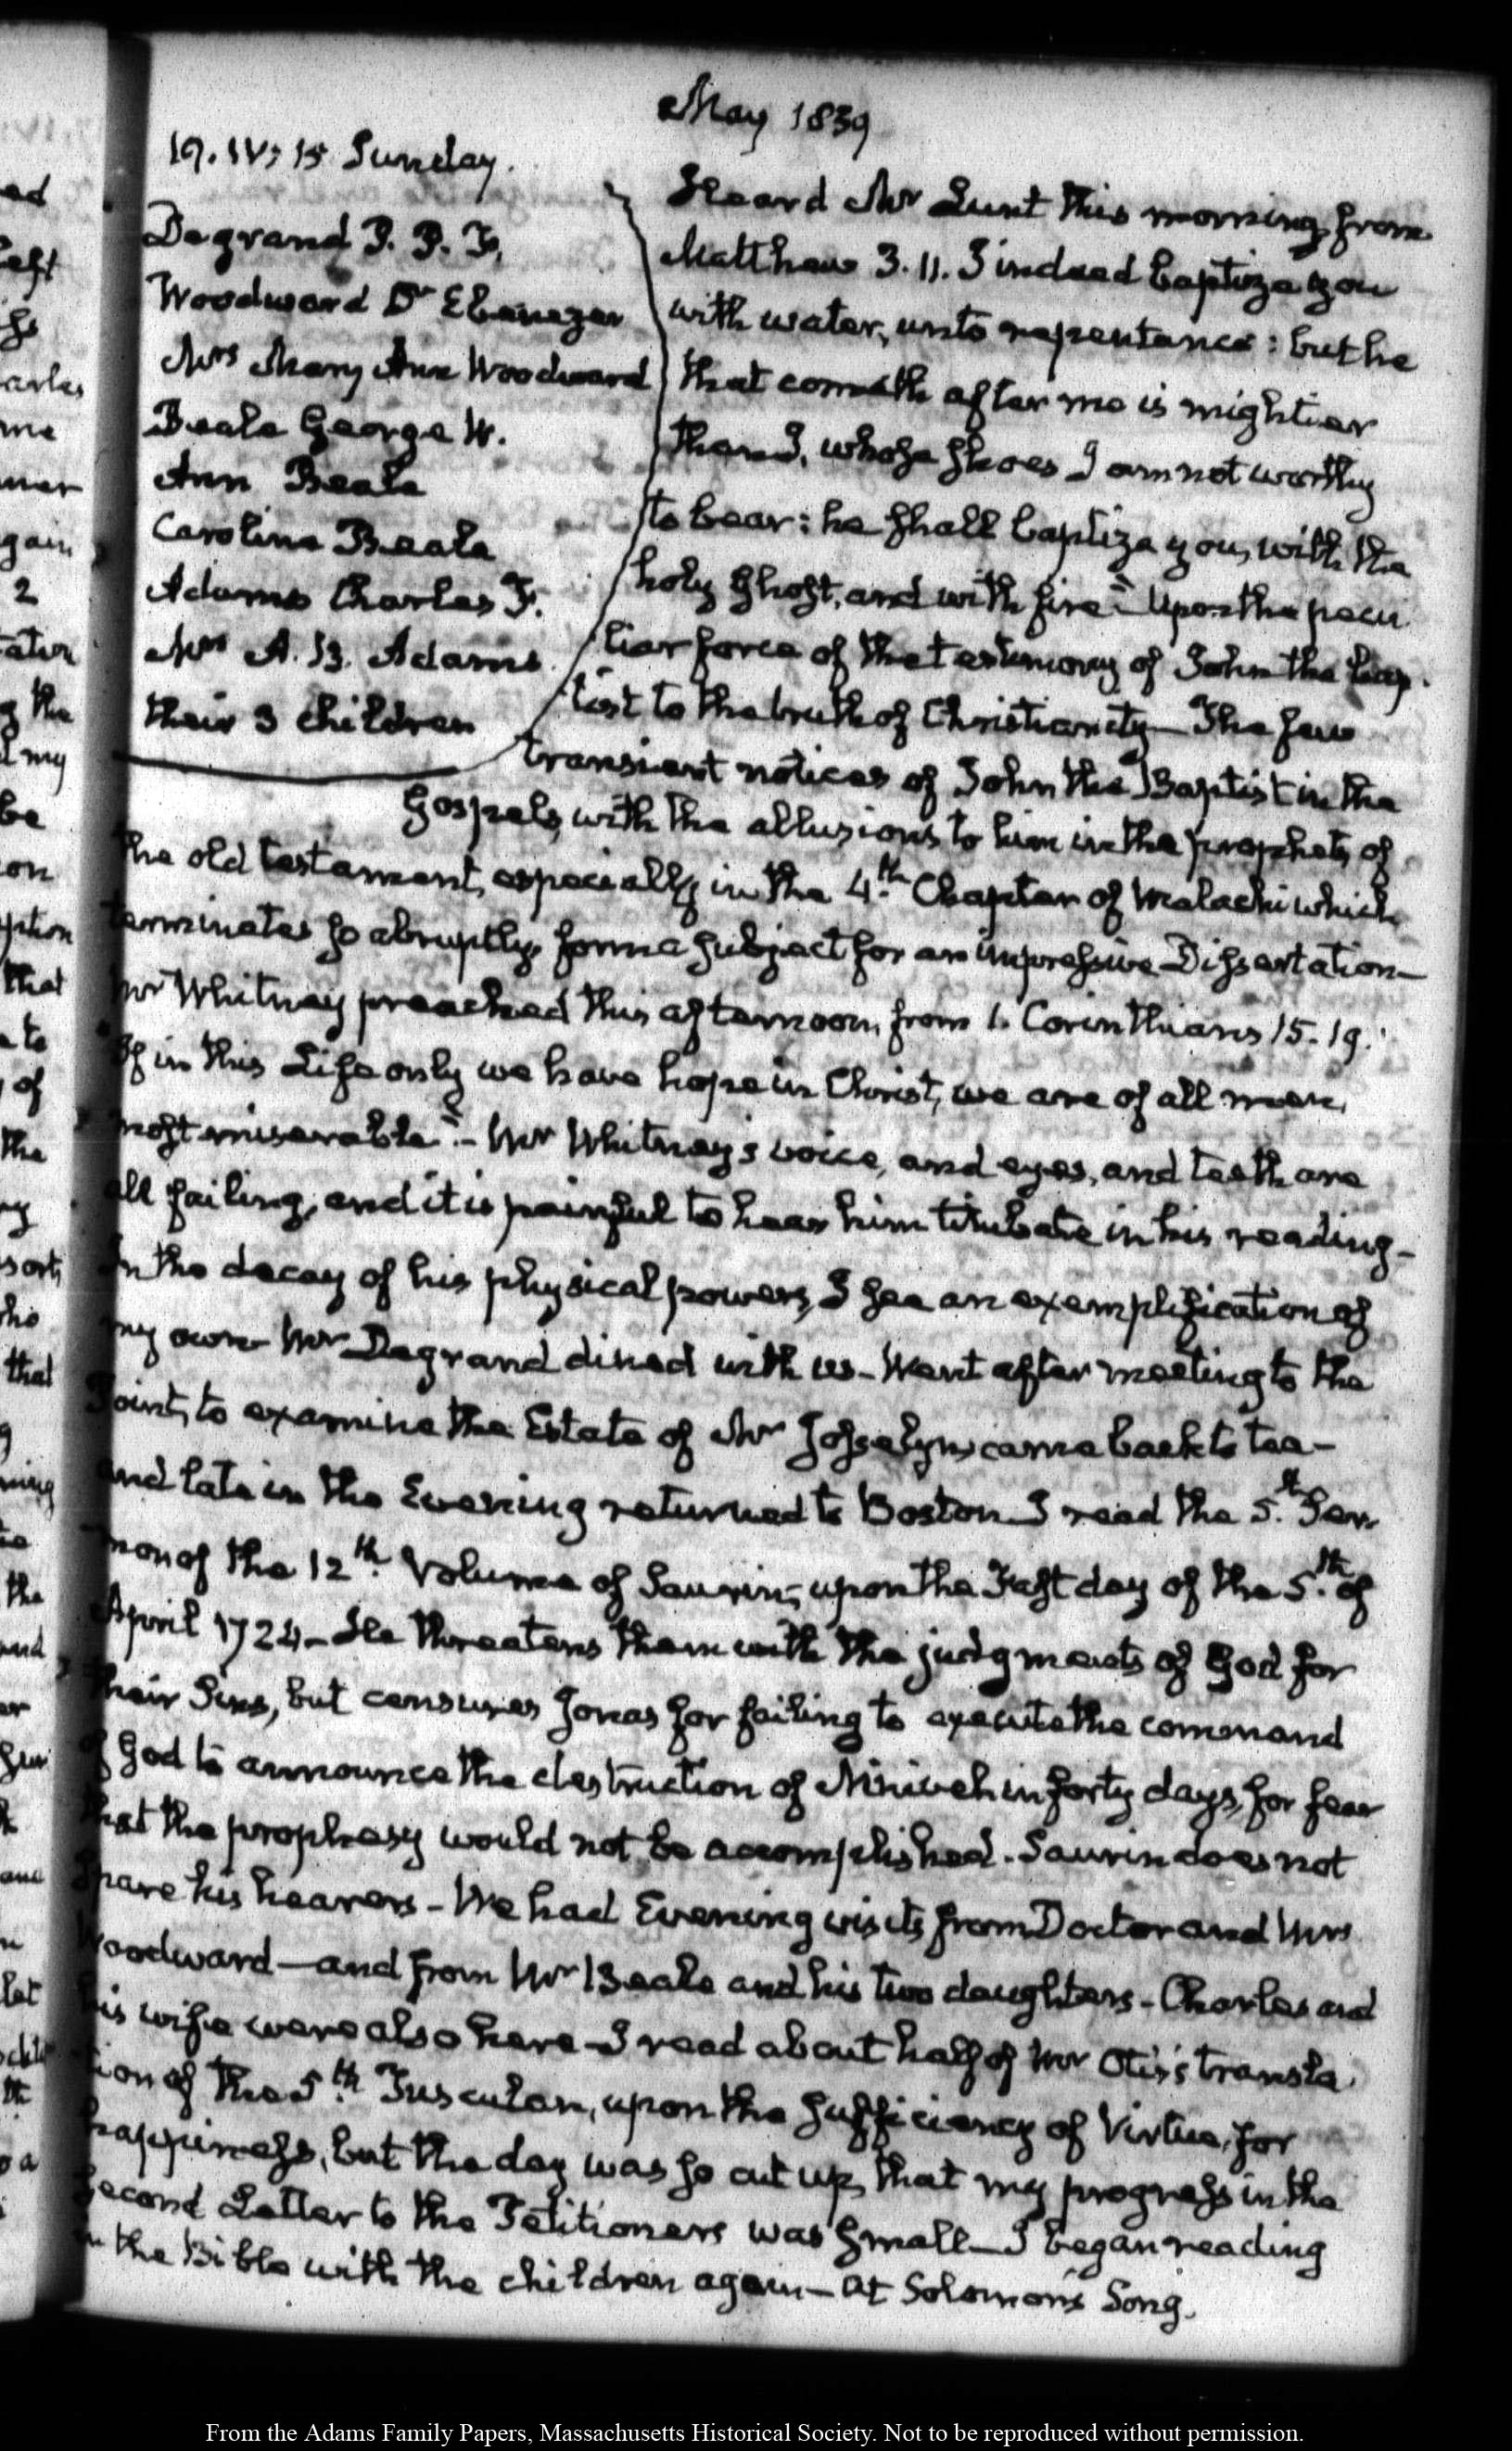 May 1839
19. IV: 15 Sunday.
Degrand P. P. F.
Woodward Dr Ebenezer
Mrs Mary Ann Woodward
Beale George W.
Ann Beale
Caroline Beale
Adams Charles F.
Mrs A. B. Adams
their 3 children
Heard Mr Lunt this morning from
Matthew 3. 11. I indeed baptize you
with water, unto repentance: but he
that cometh after me is mightier
than I, whose shoes I am not worthy
to bear: he shall baptize you, with the
holy Ghost, and with fire" Upon the pecu
liar force of the testimony of John the Bap-
tist to the truth of Christianity—The few
transient notices of John the Baptist in the
Gospels, with the allusions to him in the prophets of
the old testament, especially in the 4.th Chapter of Malachi which
terminates so abruptly, form a subject for an impressive Dissertation—
Mr Whitney preached this afternoon, from 1. Corinthians 15. 19.
If in this Life only we have hope in Christ, we are of all men,
most miserable".- Mr Whitney's voice, and eyes, and teeth are
all failing, and it is painful to hear him titubate in his reading-
In the decay of his physical powers, I see an exemplification of
my own- Mr Degrand dined with us- Went after meeting to the
Point, to examine the Estate of Mr Josselyn, came back to tea-
and late in the Evening returned to Boston—I read the 5.th Ser
mon of the 12th. Volume of Saurin, upon the Fast day of the 5.th of
April 1724- He threatens them with the judgments of God for
their Sins, but censures Jonas for failing to execute the command
of God to announce the destruction of Niniveh in forty days, for fear
that the prophesy would not be accomplished. Saurin does not
spare his hearers- We had Evening visits from Doctor and Mrs
Woodward—and from Mr Beale and his two daughters- Charles and
his wife were also here- I read about half of Mr Otis's transla
tion of the 5th. Tusculan, upon the sufficiency of Virtue, for
happiness, but the day was so cut up, that my progress in the
second Letter to the Petitioners was small—I began reading
in the Bible with the children again—at Solomon's Song.
ed
left
gs
arles
me
mer
gain
2
ation
g the
d my
be
on
ption
that
to
of
the
ny
sort
ho
that
ning
the
and
or
that
From the Adams Family Papers, Massachusetts Historical Society. Not to be reproduced without permission.